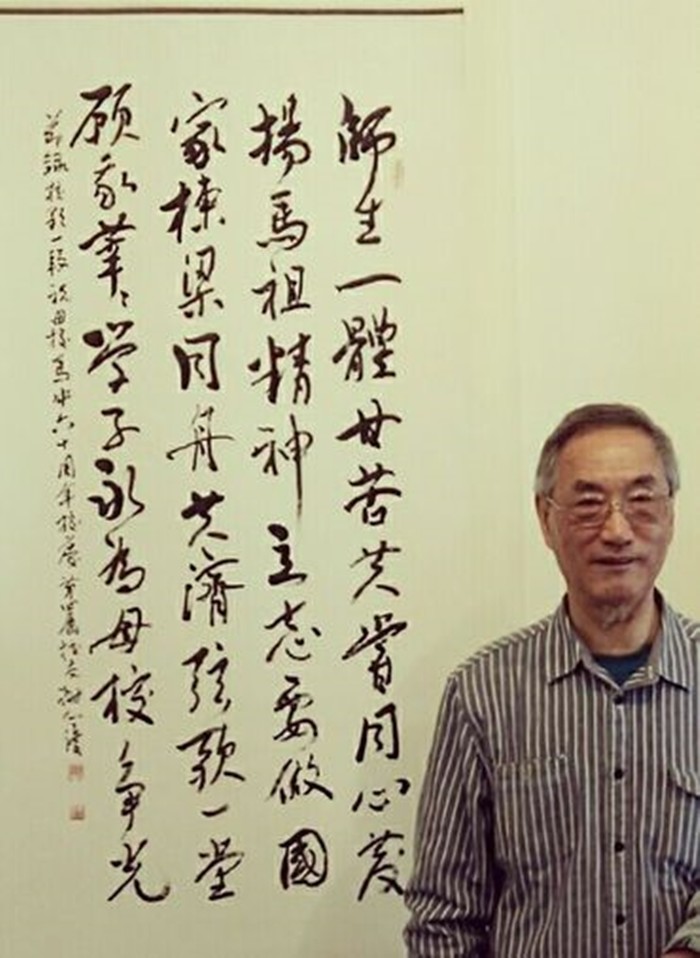 師生一體甘苦共嘗同心發
揚馬祖精神立志要做國
家棟梁同舟共濟弦歌一堂
願我莘々学子永為母校争光
節録校歌一段祝母校馬中六十周年校慶